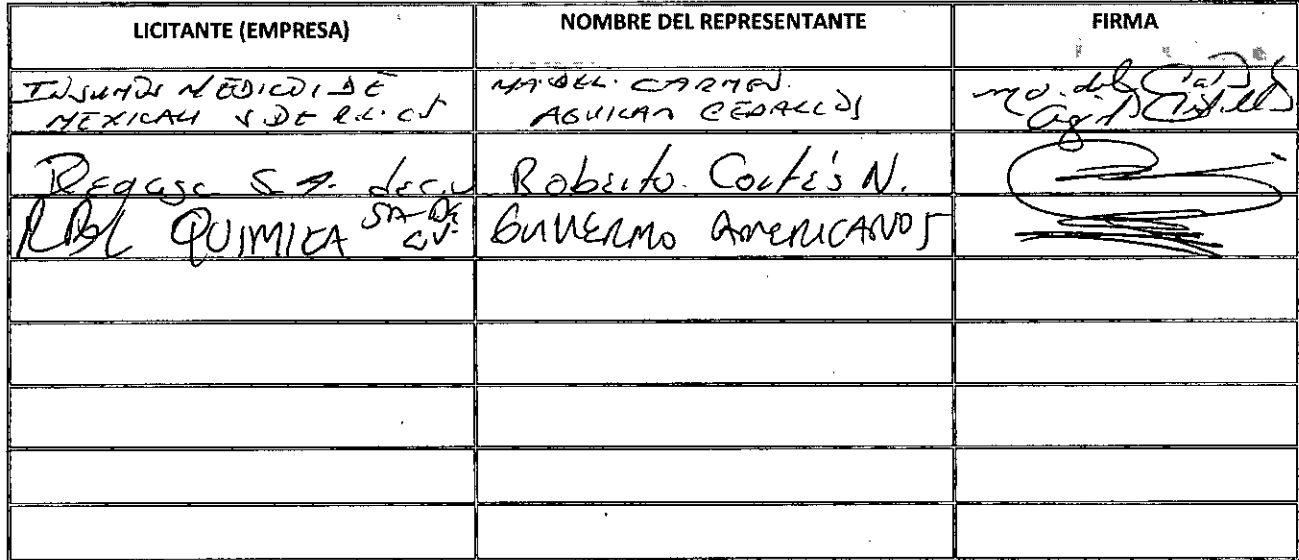 LICITANTE (EMPRESA)
NOMBRE DEL REPRESENTANTE
FIRMA
INSUMOS MEDICOS DE
MEXICALI S DE R.L. CV
MA. DEL CARMEN
AGUILAR CEBALLOS
Ma. del
Regasa S.A. de c.v
Roberto Cortés N.
QUIMICA SA DE CV.
GUILLERMO AMERICANOS